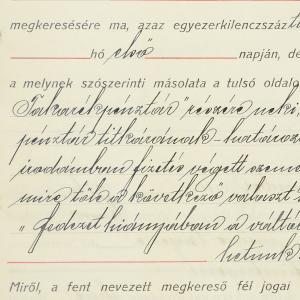 megkeresésére ma, azaz egyezerkilenczszáz
hó első napján, dé
a melynek szószerinti másolata a tulsó oldalo
Takarékpénztár" részére neki,
pénztár titkárának határoz
irodámban fizetés végett szeme
mire tőle a következő választ
"Fedezet hiányában a váltó
hetünk
Miről, a fent nevezett megkereső fél jogai